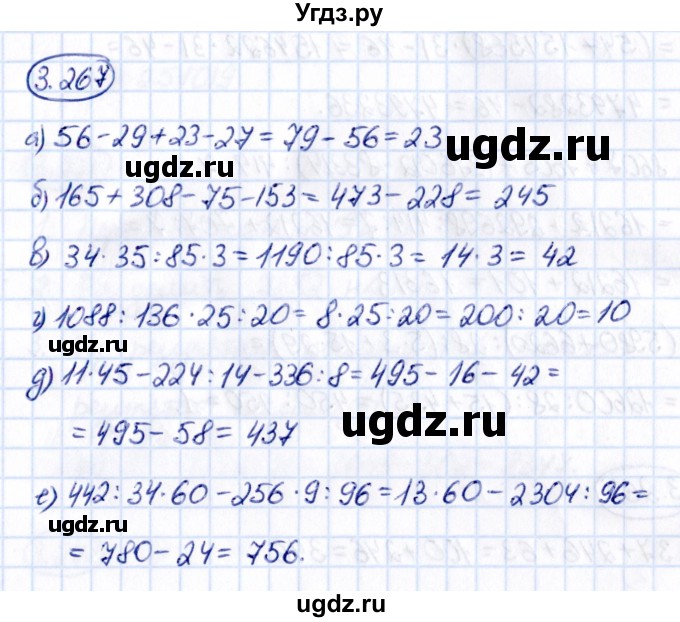 Угдз.ру
3.267
а) 56-29+23-27=79-56=23
ugdz.ru
б) 165+308-75-153=473-228=245
ugdz.ru
в) 34·35:85·3=1190:85·3=14·3=42
г) 1088:136·25:20=8·25:20=200:20=10
ugdz.ru
д) 11·45-224:14-336:8=495-16-42=
ugdz.ru
=495-58=437
е) 442:34·60-256·9:96=13·60-2304:96=
ugdz.ru
=780-24=756.
ugdz.ru